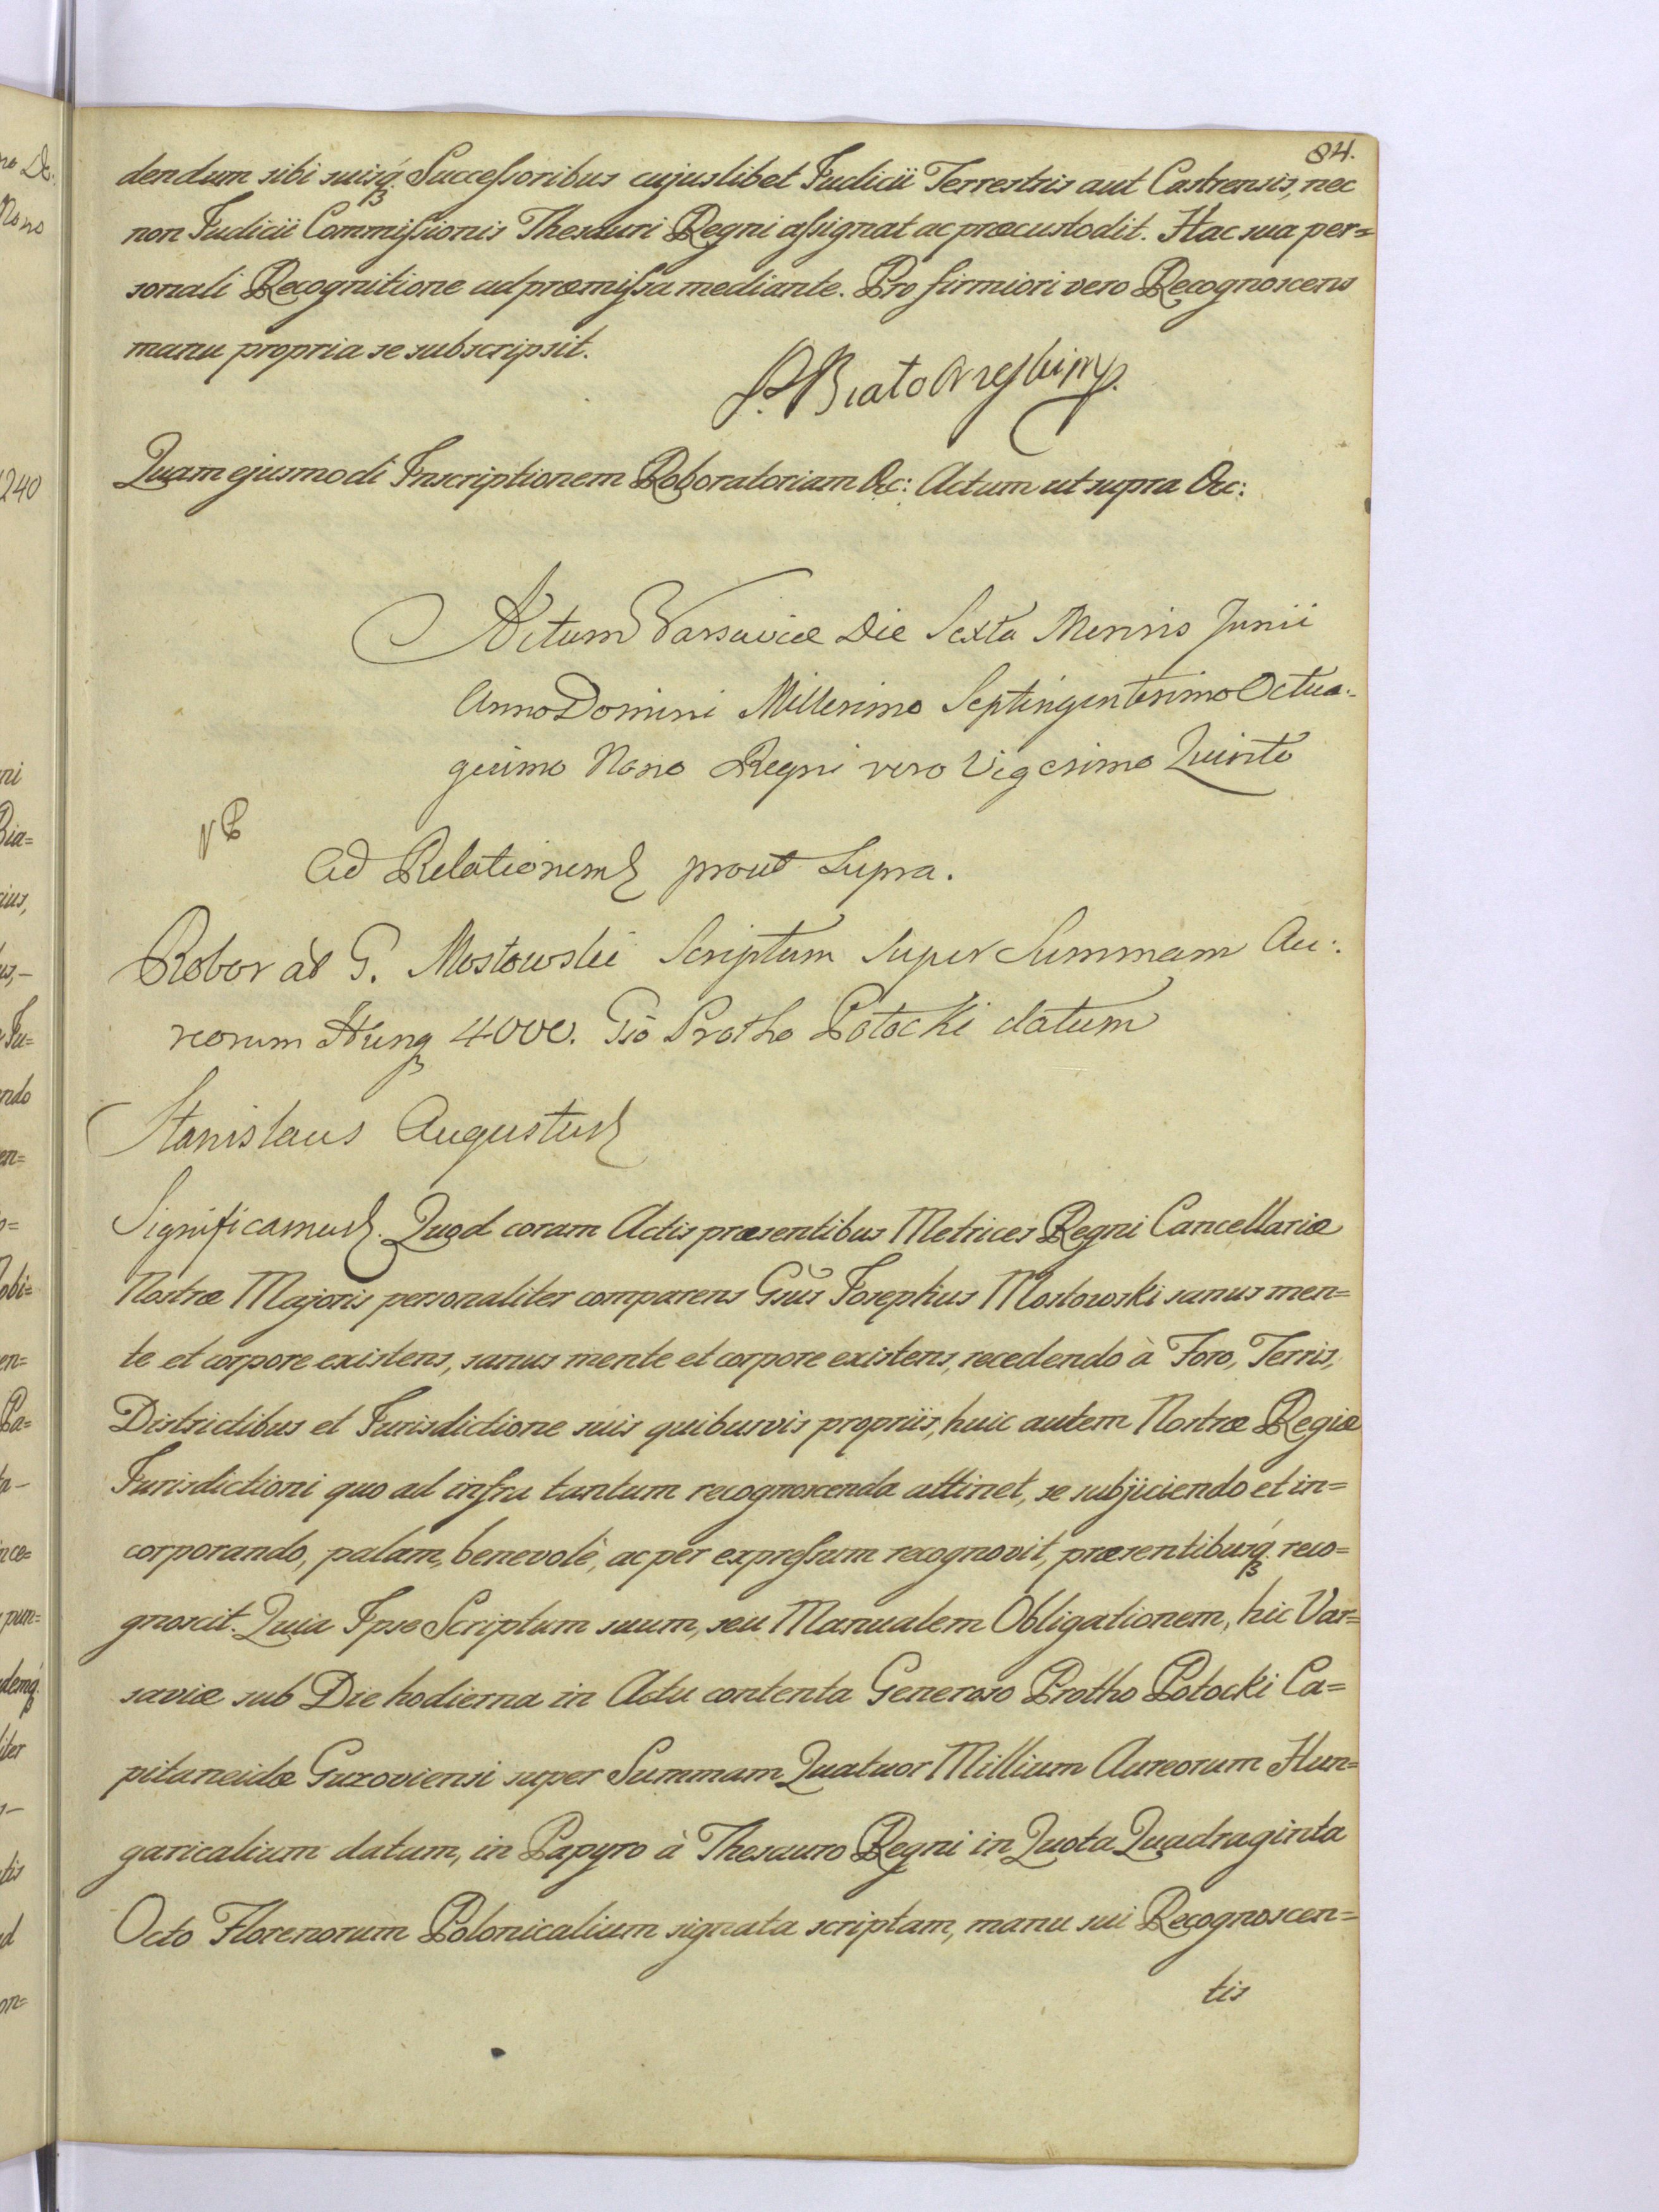 84.
dendum sibi suisq́ꝫ Successoribus cujuslibet Judicii Terrestris aut Castrensis, nec
non Judicii Commissionis Thesauri Regni assignat ac præcustodit. Hac sua per=
sonali Recognitione ad præmissa mediante. Pro firmiori vero Recognoscens
manu propria se subscripsit.
Quam ejusmodi Inscriptionem Roboratoriam &c: Actum ut supra &c:
Actum Varsaviæ Die Sexta Mensis Junii
Anno Domini Millesimo Septingentesimo Octua-
gesimo Nono Regni vero Vigesimo Quinto
Ad Relationem prout Supra.
Robor ab G. Mostowski Scriptum Super Summam Au:
reorum Hungꝫ 4000. Gso Protho Potocki datum
Stanislaus Augustus
Significamus. Quod coram Actis præsentibus Metrices Regni Cancellariæ
Nostræ Majoris personaliter comparens Gsus Josephus Mostowski sanus men=
te et corpore existens, sanus mente et corpore existens, recedendo à Foro, Terris,
Districtibus et Jurisdictione suis quibusvis propriis, huic autem Nostræ Regiæ
Jurisdictioni quo ad infra tantum recognoscenda attinet, se subjiciendo et in=
corporando, palam, benevolè, ac per expressum recognovit, præsentibusq́ꝫ reco=
gnoscit. Quia Ipse Scriptum suum, seu Manualem Obligationem, hic Var=
saviæ sub Die hodierna in Actu contenta Generoso Protho Potocki Ca=
pitaneidæ Guzoviensi super Summam Quatuor Millium Aureorum Hun=
garicalium datum, in Papyro à Thesauro Regni in Quota Quadraginta
Octo Florenorum Polonicalium signata scriptam, manu sui Recognoscen=
tis